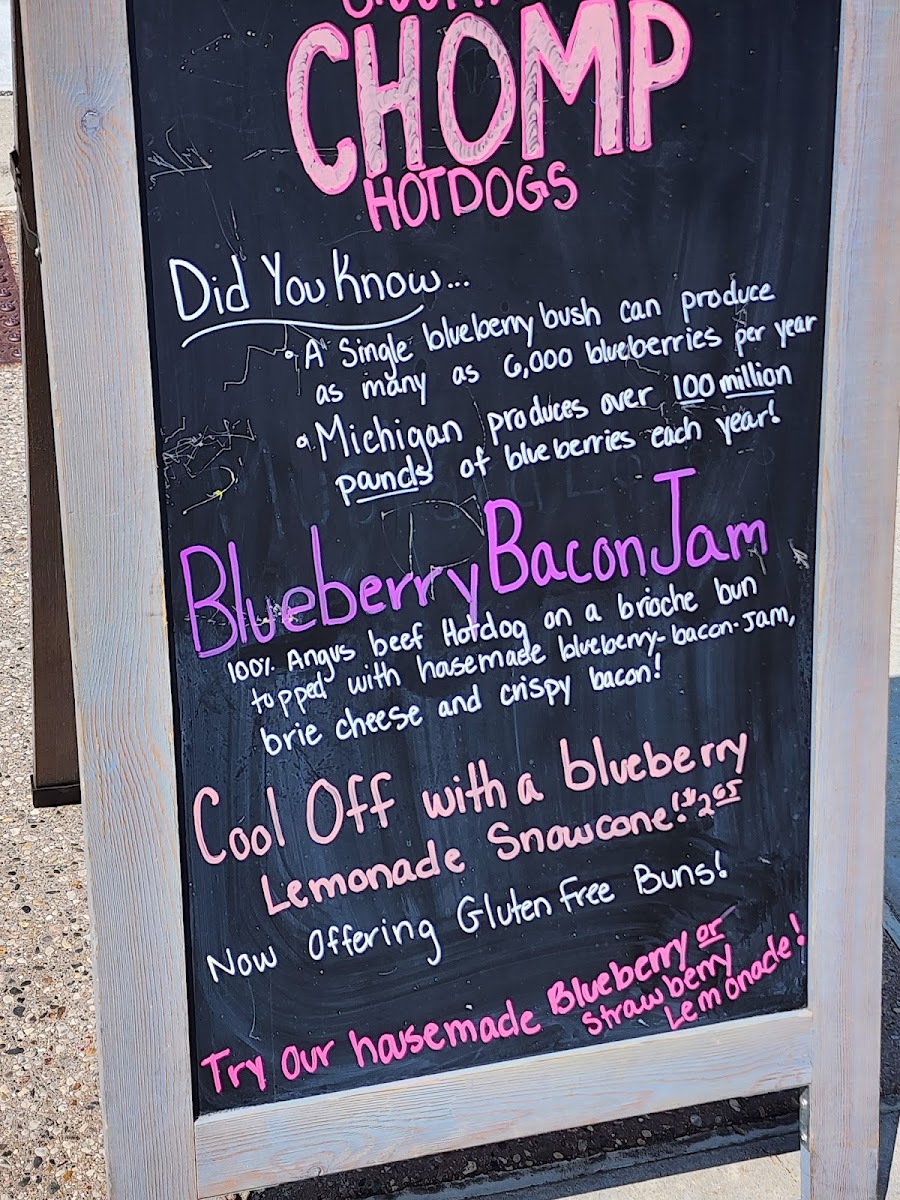 CHOMP
HOTDOGS
Did You Know...
• A Single blueberry bush can produce
as many as 6,000 blueberries per year
• Michigan produces over 100 million
pounds of blueberries each year!
Blueberry Bacon Jam
100% Angus beef Hotdog on a brioche bun
topped with housemade blueberry-bacon-Jam,
brie cheese and crispy bacon!
Cool Off with a blueberry
Lemonade Snowcone!
Now Offering Gluten Free Buns!
Try our housemade Blueberry or
strawberry
Lemonade!